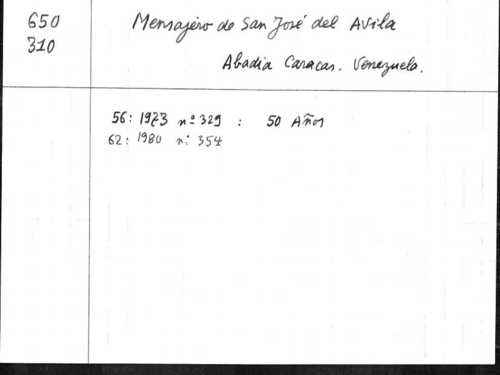 650
310
Mensajero de San José del Avila
Abadia Caracas. Venezuela.
56: 1973 nº 329 : 50 Años
62: 1980 nº 354